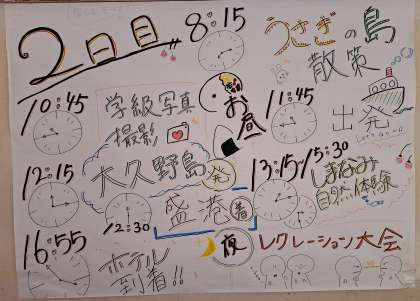 2日目
8:15
うさぎの島
散策
10:45
学級写真
撮影
お昼
11:45
出発
Let's Go~
12:15
大久野島
発
12:30
盛港
着
13:15~15:30
しまなみ
自然体験
16:55
ホテル
到着!!
夜
レクレーション大会